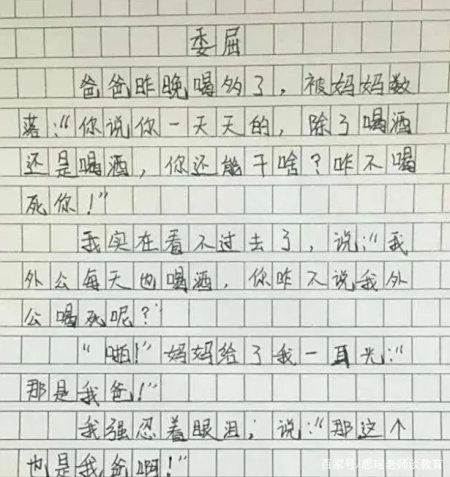 委屈
爸爸昨晚喝多了，被妈妈数
落：“你说你一天天的，除了喝酒
还是喝酒，你还能干啥？咋不喝
死你！”
我实在看不过去了，说：“我
外公每天也喝酒，你咋不说我外
公喝死呢？
“啪！”妈妈给了我一耳光：“
那是我爸！”
我强忍着眼泪，说：“那这个
也是我爸啊！”